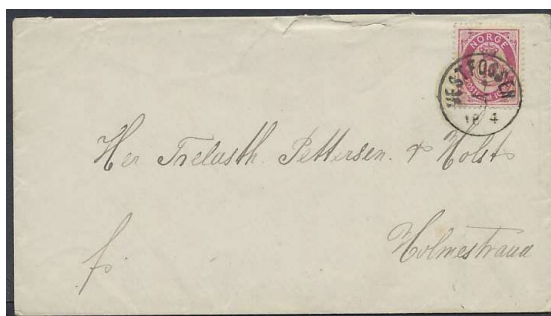 NORGE
VESTFOSSEN
18 4
Her Trelasth. Pettersen & Holst
f.
Holmestrand